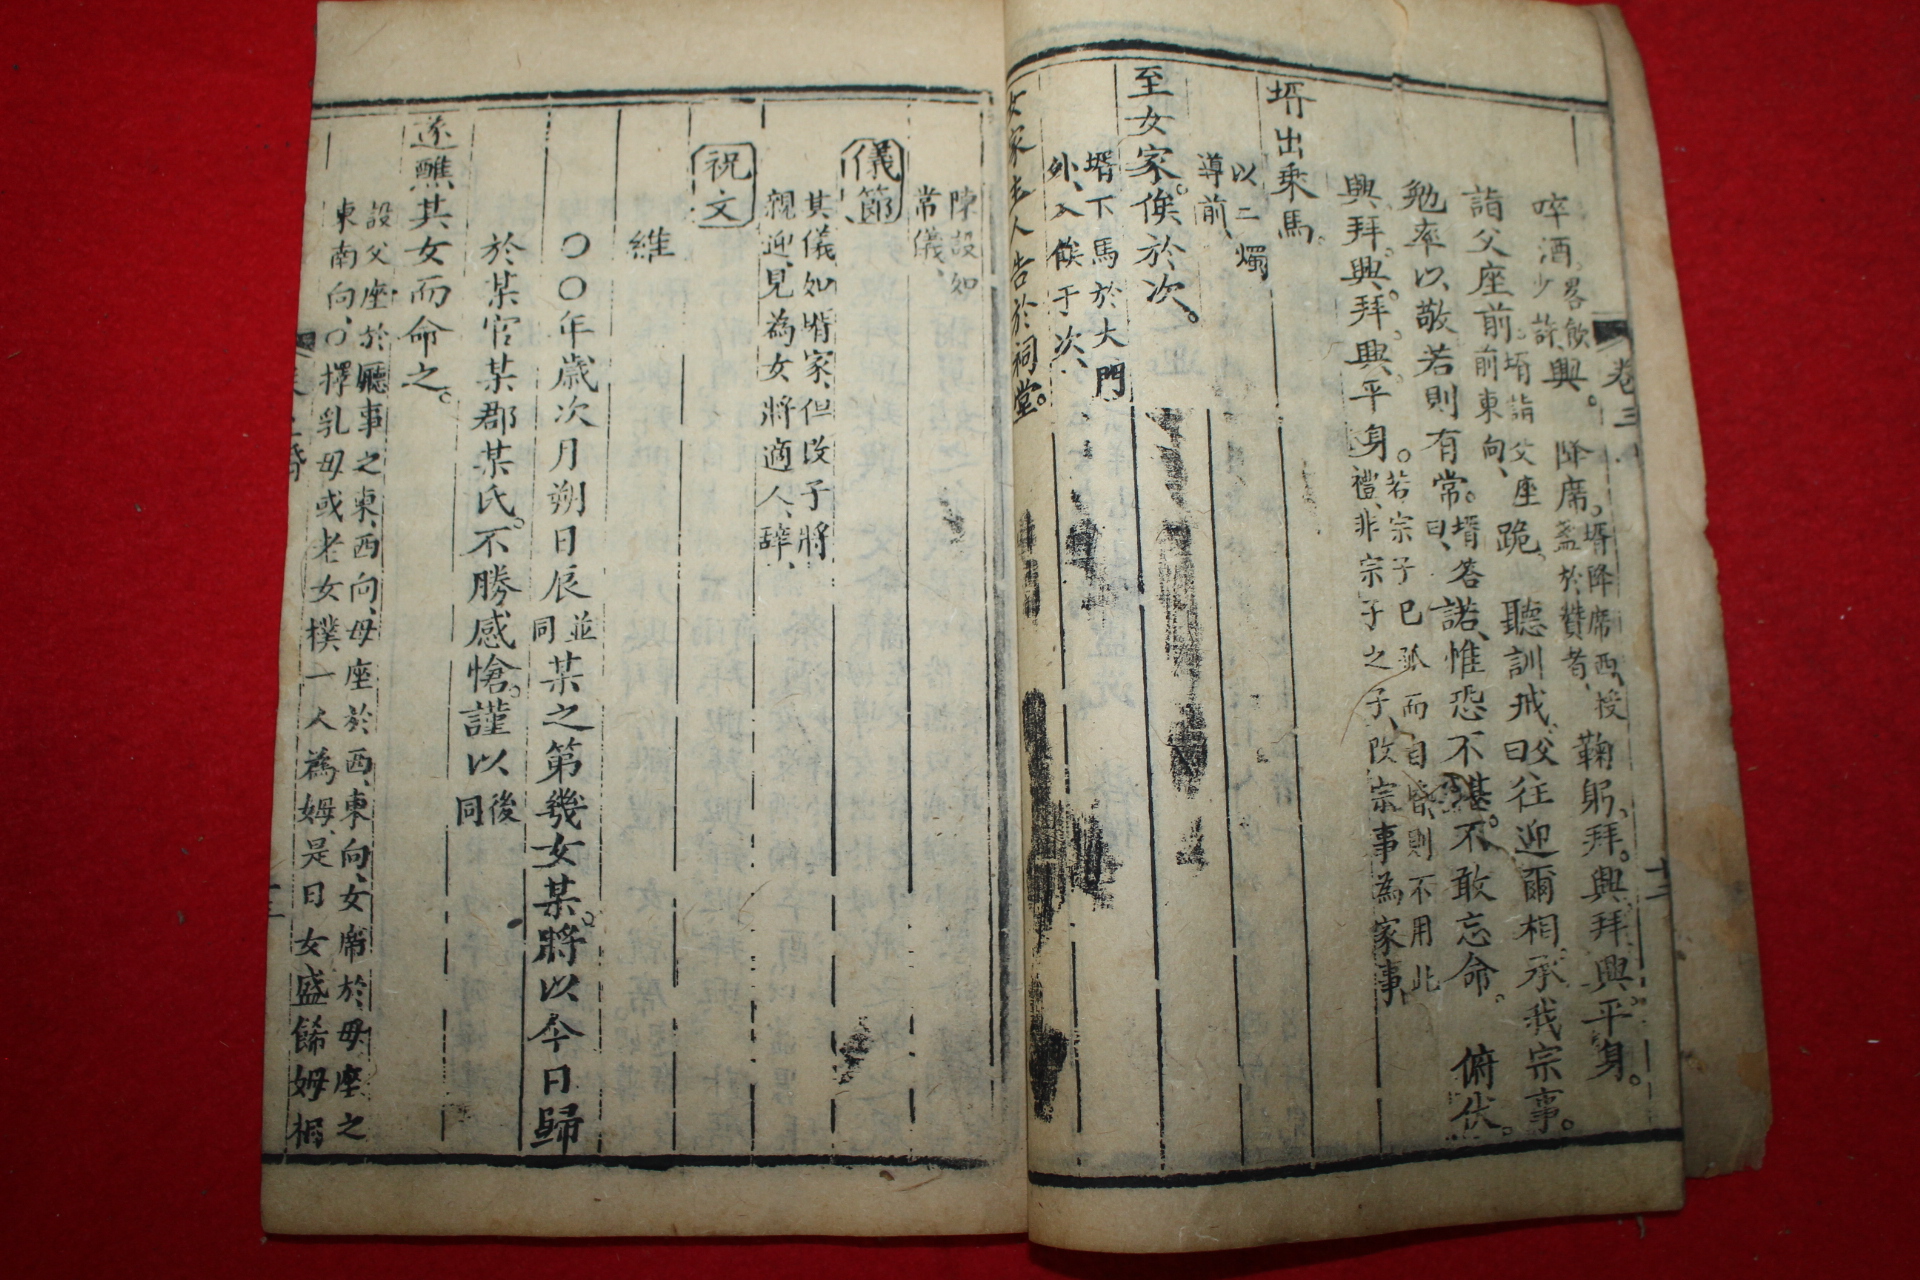 卷三
十三
啐酒略飲少許興。降席。壻降席西授盞於贊者鞠躬拜。興。拜。興。平身。
詣父座前壻詣父座前東向跪。聽訓戒父曰往迎爾相承我宗事。
勉率以敬若則有常。壻答曰諾惟恐不堪。不敢忘命。俯伏。
興。拜。興。拜。興。平身。○若宗子已孤而自昏則不用此禮非宗子之子改宗事為家事
壻出乘馬
以二燭導前
至女家。俟於次。
壻下馬於大門外入俟于次
女家主人告於祠堂。
陳設如常儀
儀節
其儀如壻家但改子將親迎見為女將適人辭
祝文
維
○○年歲次月朔日辰並同某之第幾女某。將以今日歸
於某官某郡某氏。不勝感愴。謹以後同
遂醮其女而命之。
設父座於廳事之東西向母座於西東向女席於母座之東南向○擇乳母或老女僕一人為姆是日女盛餙姆相